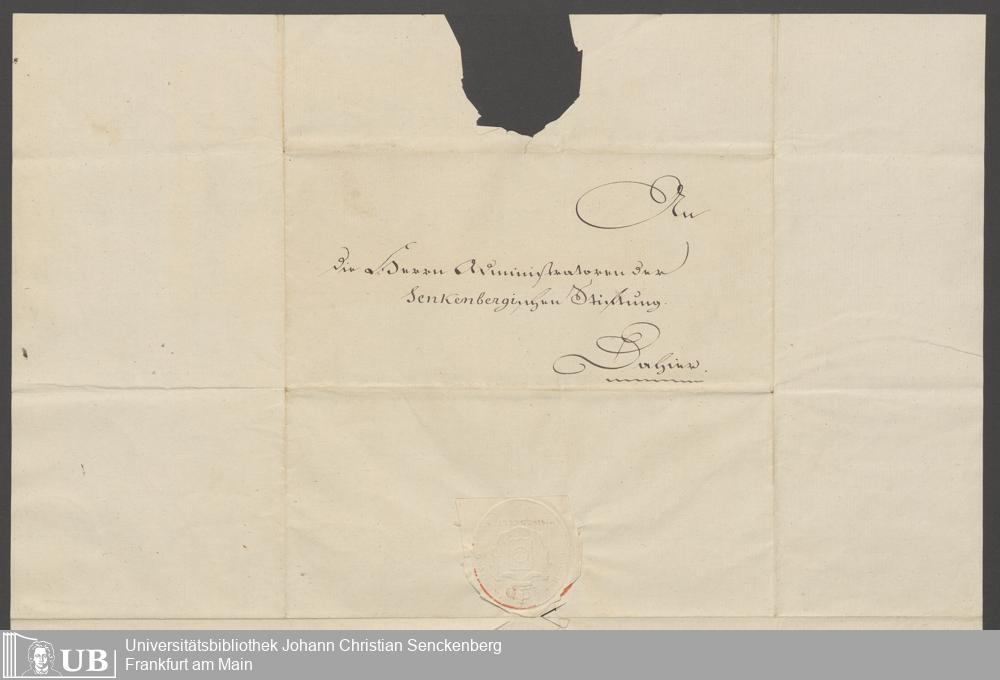 An
die Herrn Administratoren der
Senkenbergischen Stiftung.
Dahier.
UB
Universitätsbibliothek Johann Christian Senckenberg
Frankfurt am Main